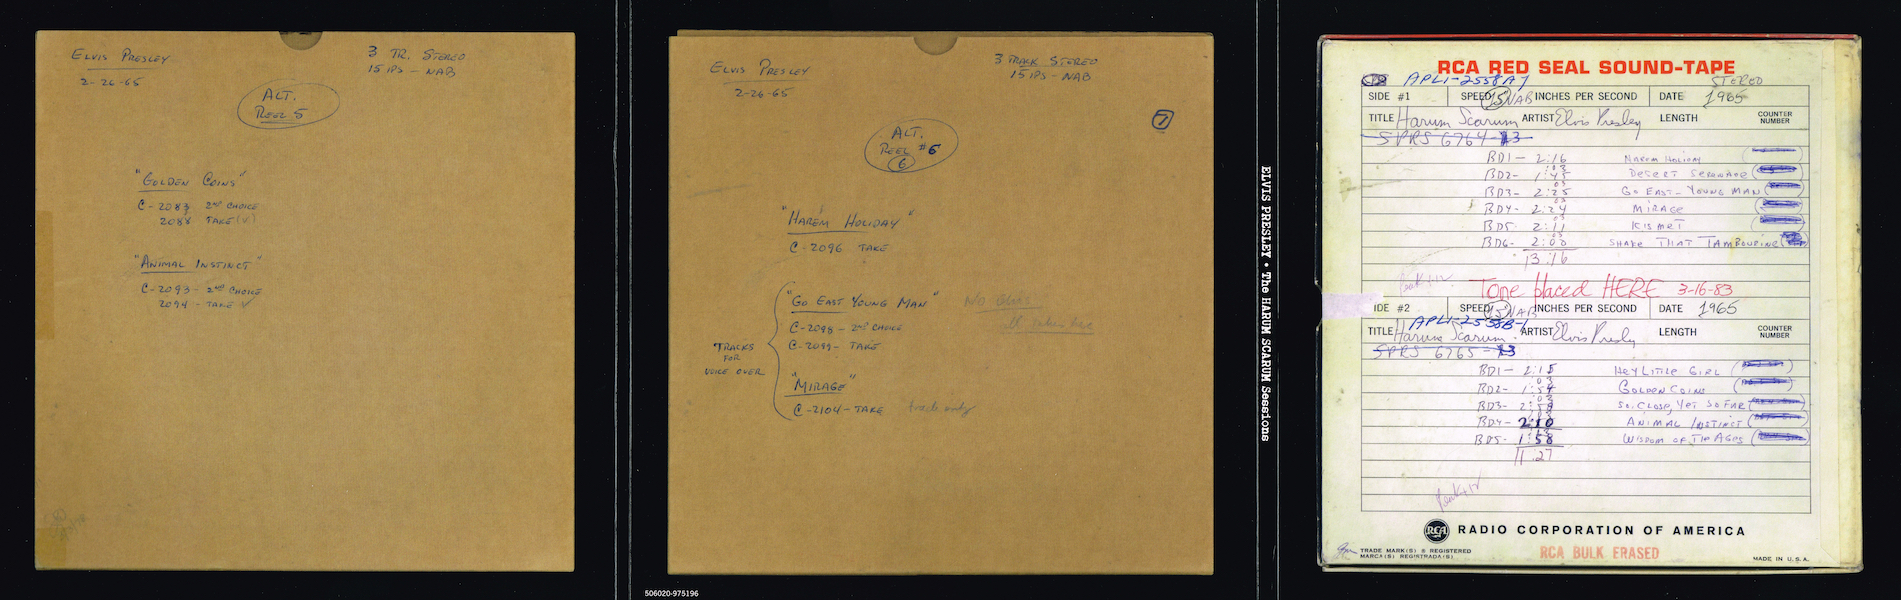 ELVIS PRESLEY
2-26-65
3 TR. STEREO
15 IPS - NAB
ALT.
REEL 5
"GOLDEN COINS"
C-2083 2ND CHOICE
2088 TAKE (√)
"ANIMAL INSTINCT"
C-2093 - 2ND CHOICE
2094 - TAKE √
ELVIS PRESLEY
2-26-65
3 TRACK STEREO
15 IPS - NAB
7
ALT.
REEL #6
6
"HAREM HOLIDAY"
C-2096 TAKE
"GO EAST YOUNG MAN" NO
C-2098 - 2ND CHOICE
C-2099 - TAKE
TRACKS
FOR
VOICE OVER
"MIRAGE"
C-2104 - TAKE track only
506020-975196
ELVIS PRESLEY • The HARUM SCARUM Sessions
RCA RED SEAL SOUND-TAPE
APL1-2558A1 STEREO
SIDE #1 SPEED 15 NAB INCHES PER SECOND DATE 1965
TITLE Harum Scarum ARTIST Elvis Presley LENGTH COUNTER NUMBER
SPRS 6764-13
BD1- 2:16 HAREM HOLIDAY
BD2- 1:45 DESERT SERENADE
BD3- 2:25 GO EAST-YOUNG MAN
BD4- 2:24 MIRAGE
BD5- 2:11 KISMET
BD6- 2:00 SHAKE THAT TAMBOURINE
13:16
Tone placed HERE 3-16-83
IDE #2 SPEED 15 NAB INCHES PER SECOND DATE 1965
APL1-2558B-1
TITLE Harum Scarum ARTIST Elvis Presley LENGTH COUNTER NUMBER
SPRS 6765-13
BD1- 2:15 HEY LITTLE GIRL
BD2- 1:54 GOLDEN COINS
BD3- SO, CLOSE, YET SO FAR
BD4- 2:10 ANIMAL INSTINCT
BD5- 1:58 WISDOM OF THE AGES
11:27
RCA RADIO CORPORATION OF AMERICA
TRADE MARK(S) ® REGISTERED
MARCA(S) REGISTRADA(S)
RCA BULK ERASED
MADE IN U.S.A.